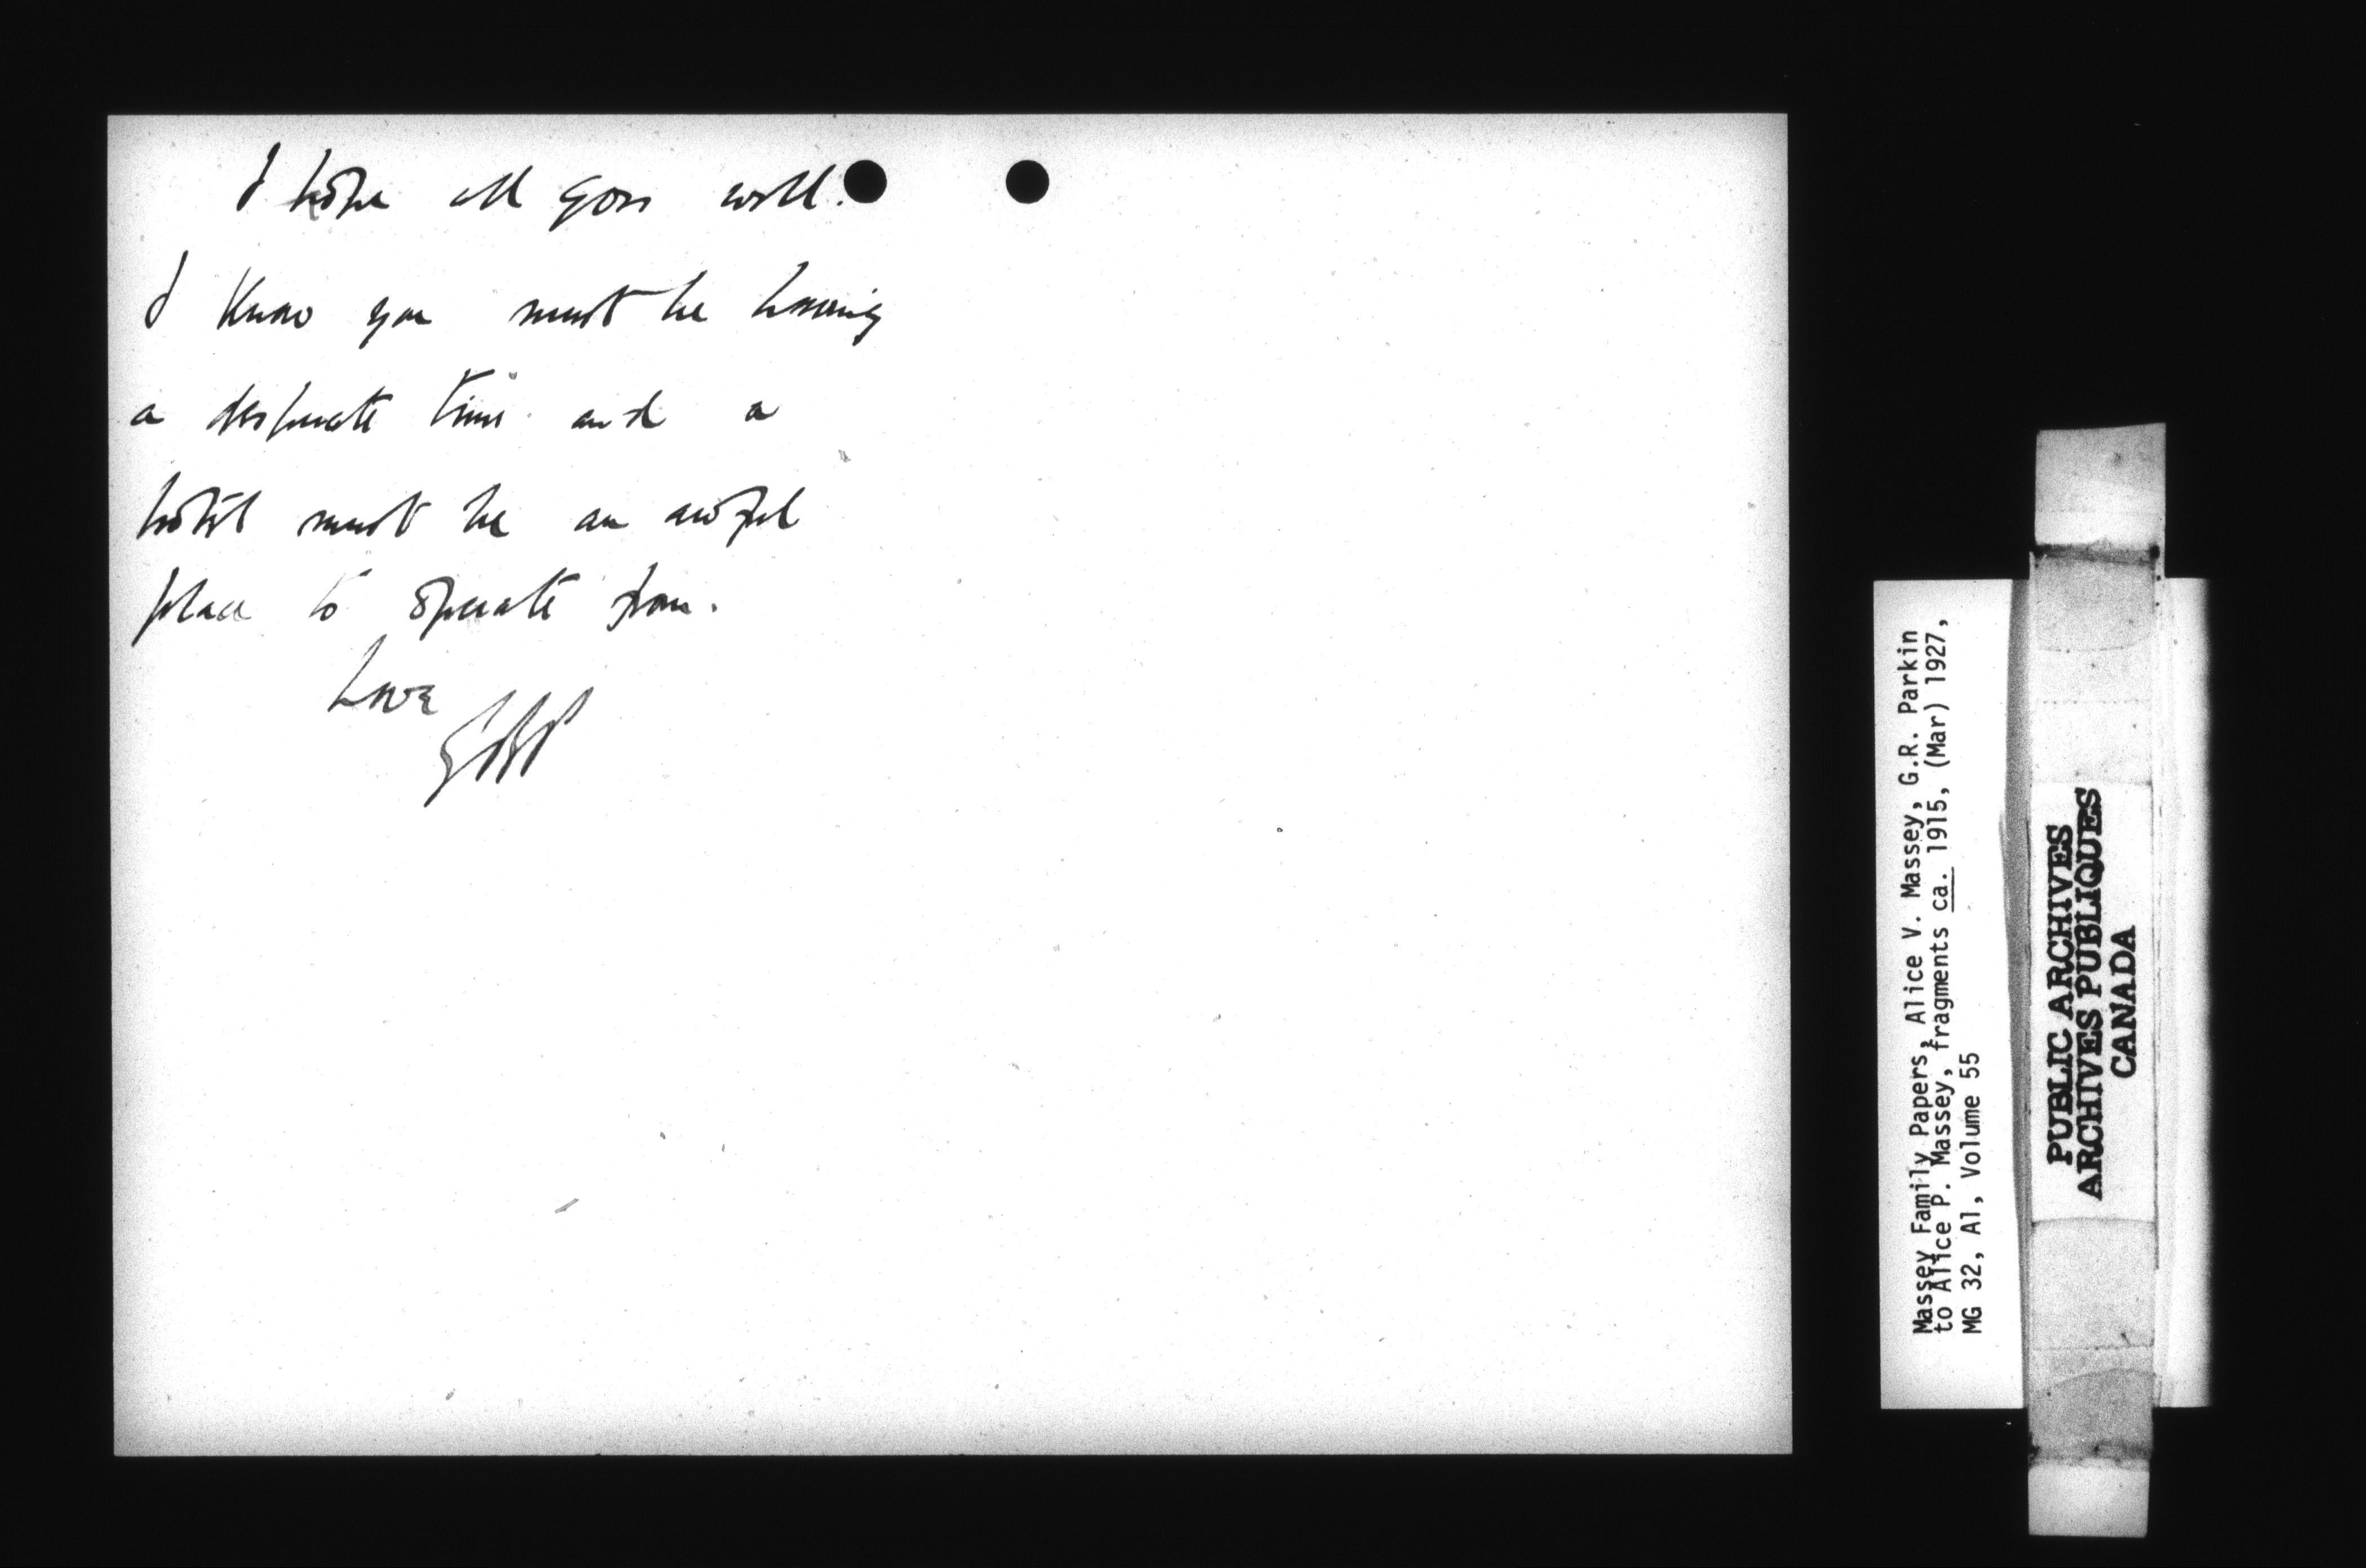 I hope all goes well.
I know you must be having
a desperate time and a
hotel must be an awful
place to operate from.
Love
Massey Family Papers, Alice V. Massey, G.R. Parkin
to Alice P. Massey, fragments ca. 1915, (Mar) 1927,
MG 32, A1, Volume 55
PUBLIC ARCHIVES
ARCHIVES PUBLIQUES
CANADA